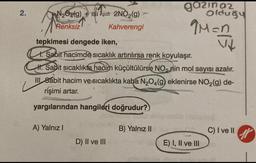 gazın az
olduğu
2. N₂O₄(g) + ısı ⇌ 2NO₂(g)
Renksiz Kahverengi
n
V↓
tepkimesi dengede iken,
I. Sabit hacimde sıcaklık artırılırsa renk koyulaşır.
II. Sabit sıcaklıkta hacim küçültülürse NO₂ nin mol sayısı azalır.
III. Sabit hacim ve sıcaklıkta kaba N₂O₄(g) eklenirse NO₂(g) de-
rişimi artar.
yargılarından hangileri doğrudur?
A) Yalnız I B) Yalnız II C) I ve II
D) II ve III E) I, II ve III